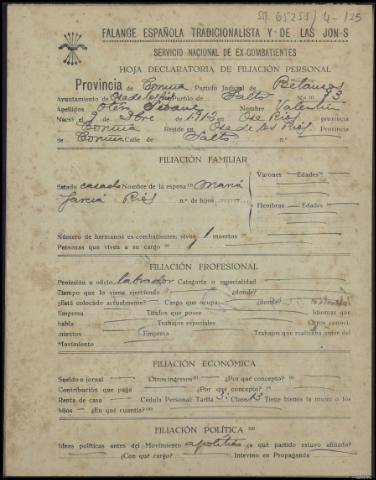 SA 65255/4-125
FALANGE ESPAÑOLA TRADICIONALISTA Y DE LAS JON-S
SERVICIO NACIONAL DE EX-COMBATIENTES
HOJA DECLARATORIA DE FILIACIÓN PERSONAL
Provincia de Coruña Partido Judicial de Betanzos
Ayuntamiento de Oza de los Ríos Pueblo de Salto N.º 13
Apellidos Otero Nombre Valentín
Nació el 3 de 1913 en Oza Ríos provincia
Coruña Reside en Oza de los Ríos Provincia
Coruña Calle de Salto
FILIACIÓN FAMILIAR
Varones Edades
Estado casado Nombre de la esposa María
García Ríos n.º de hijos
Hembras Edades
Número de hermanos ex-combatientes: vivos 1 muertos
Personas que viven a su cargo
FILIACIÓN PROFESIONAL
Profesión u oficio labrador Categoría o especialidad
Tiempo que lo viene ejerciendo ¿dónde?
¿Está colocado actualmente? Cargo que ocupa
Empresa Títulos que posee Idiomas que
habla Trabajos especiales Otros conoci-
mientos Empresa Trabajos que realizaba antes del
Movimiento
FILIACIÓN ECONÓMICA
Sueldo o jornal Otros ingresos ¿Por qué concepto?
Contribución que paga ¿Por qué concepto?
Renta de casa Cédula Personal: Tarifa 3ª Clase 13 Tiene bienes la mujer o los
hijos ¿En qué cuantía?
FILIACIÓN POLÍTICA
Ideas políticas antes del Movimiento apolítico ¿a qué partido estuvo afiliado?
¿Con qué cargo? Intervino en Propaganda